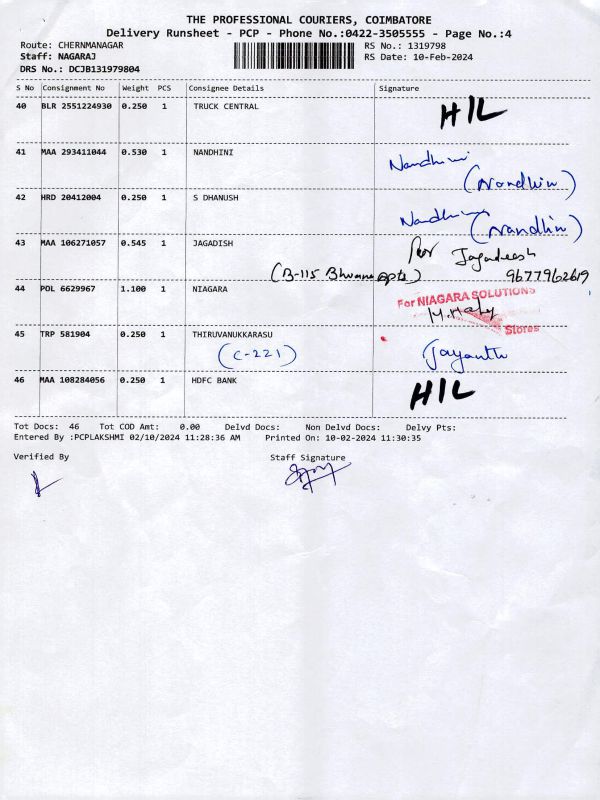 THE PROFESSIONAL COURIERS, COIMBATORE
Delivery Runsheet - PCP - Phone No.:0422-3505555 - Page No.:4
Route: CHERNMANAGAR RS No.: 1319798
Staff: NAGARAJ RS Date: 10-Feb-2024
DRS No.: DCJB131979804
S No Consignment No Weight PCS Consignee Details Signature
40 BLR 2551224930 0.250 1 TRUCK CENTRAL H/L
41 MAA 293411044 0.530 1 NANDHINI Nandhini
(Nandhin)
42 HRD 20412004 0.250 1 S DHANUSH Nandhini
(Nandhin)
43 MAA 106271057 0.545 1 JAGADISH Jagadeesh
(B-115 Bhuvana apts) 9677962619
44 POL 6629967 1.100 1 NIAGARA For NIAGARA SOLUTIONS
Stores
45 TRP 581904 0.250 1 THIRUVANUKKARASU
(C-221) Jayanth
46 MAA 108284056 0.250 1 HDFC BANK H/L
Tot Docs: 46 Tot COD Amt: 0.00 Delvd Docs: Non Delvd Docs: Delvy Pts:
Entered By :PCPLAKSHMI 02/10/2024 11:28:36 AM Printed On: 10-02-2024 11:30:35
Verified By Staff Signature